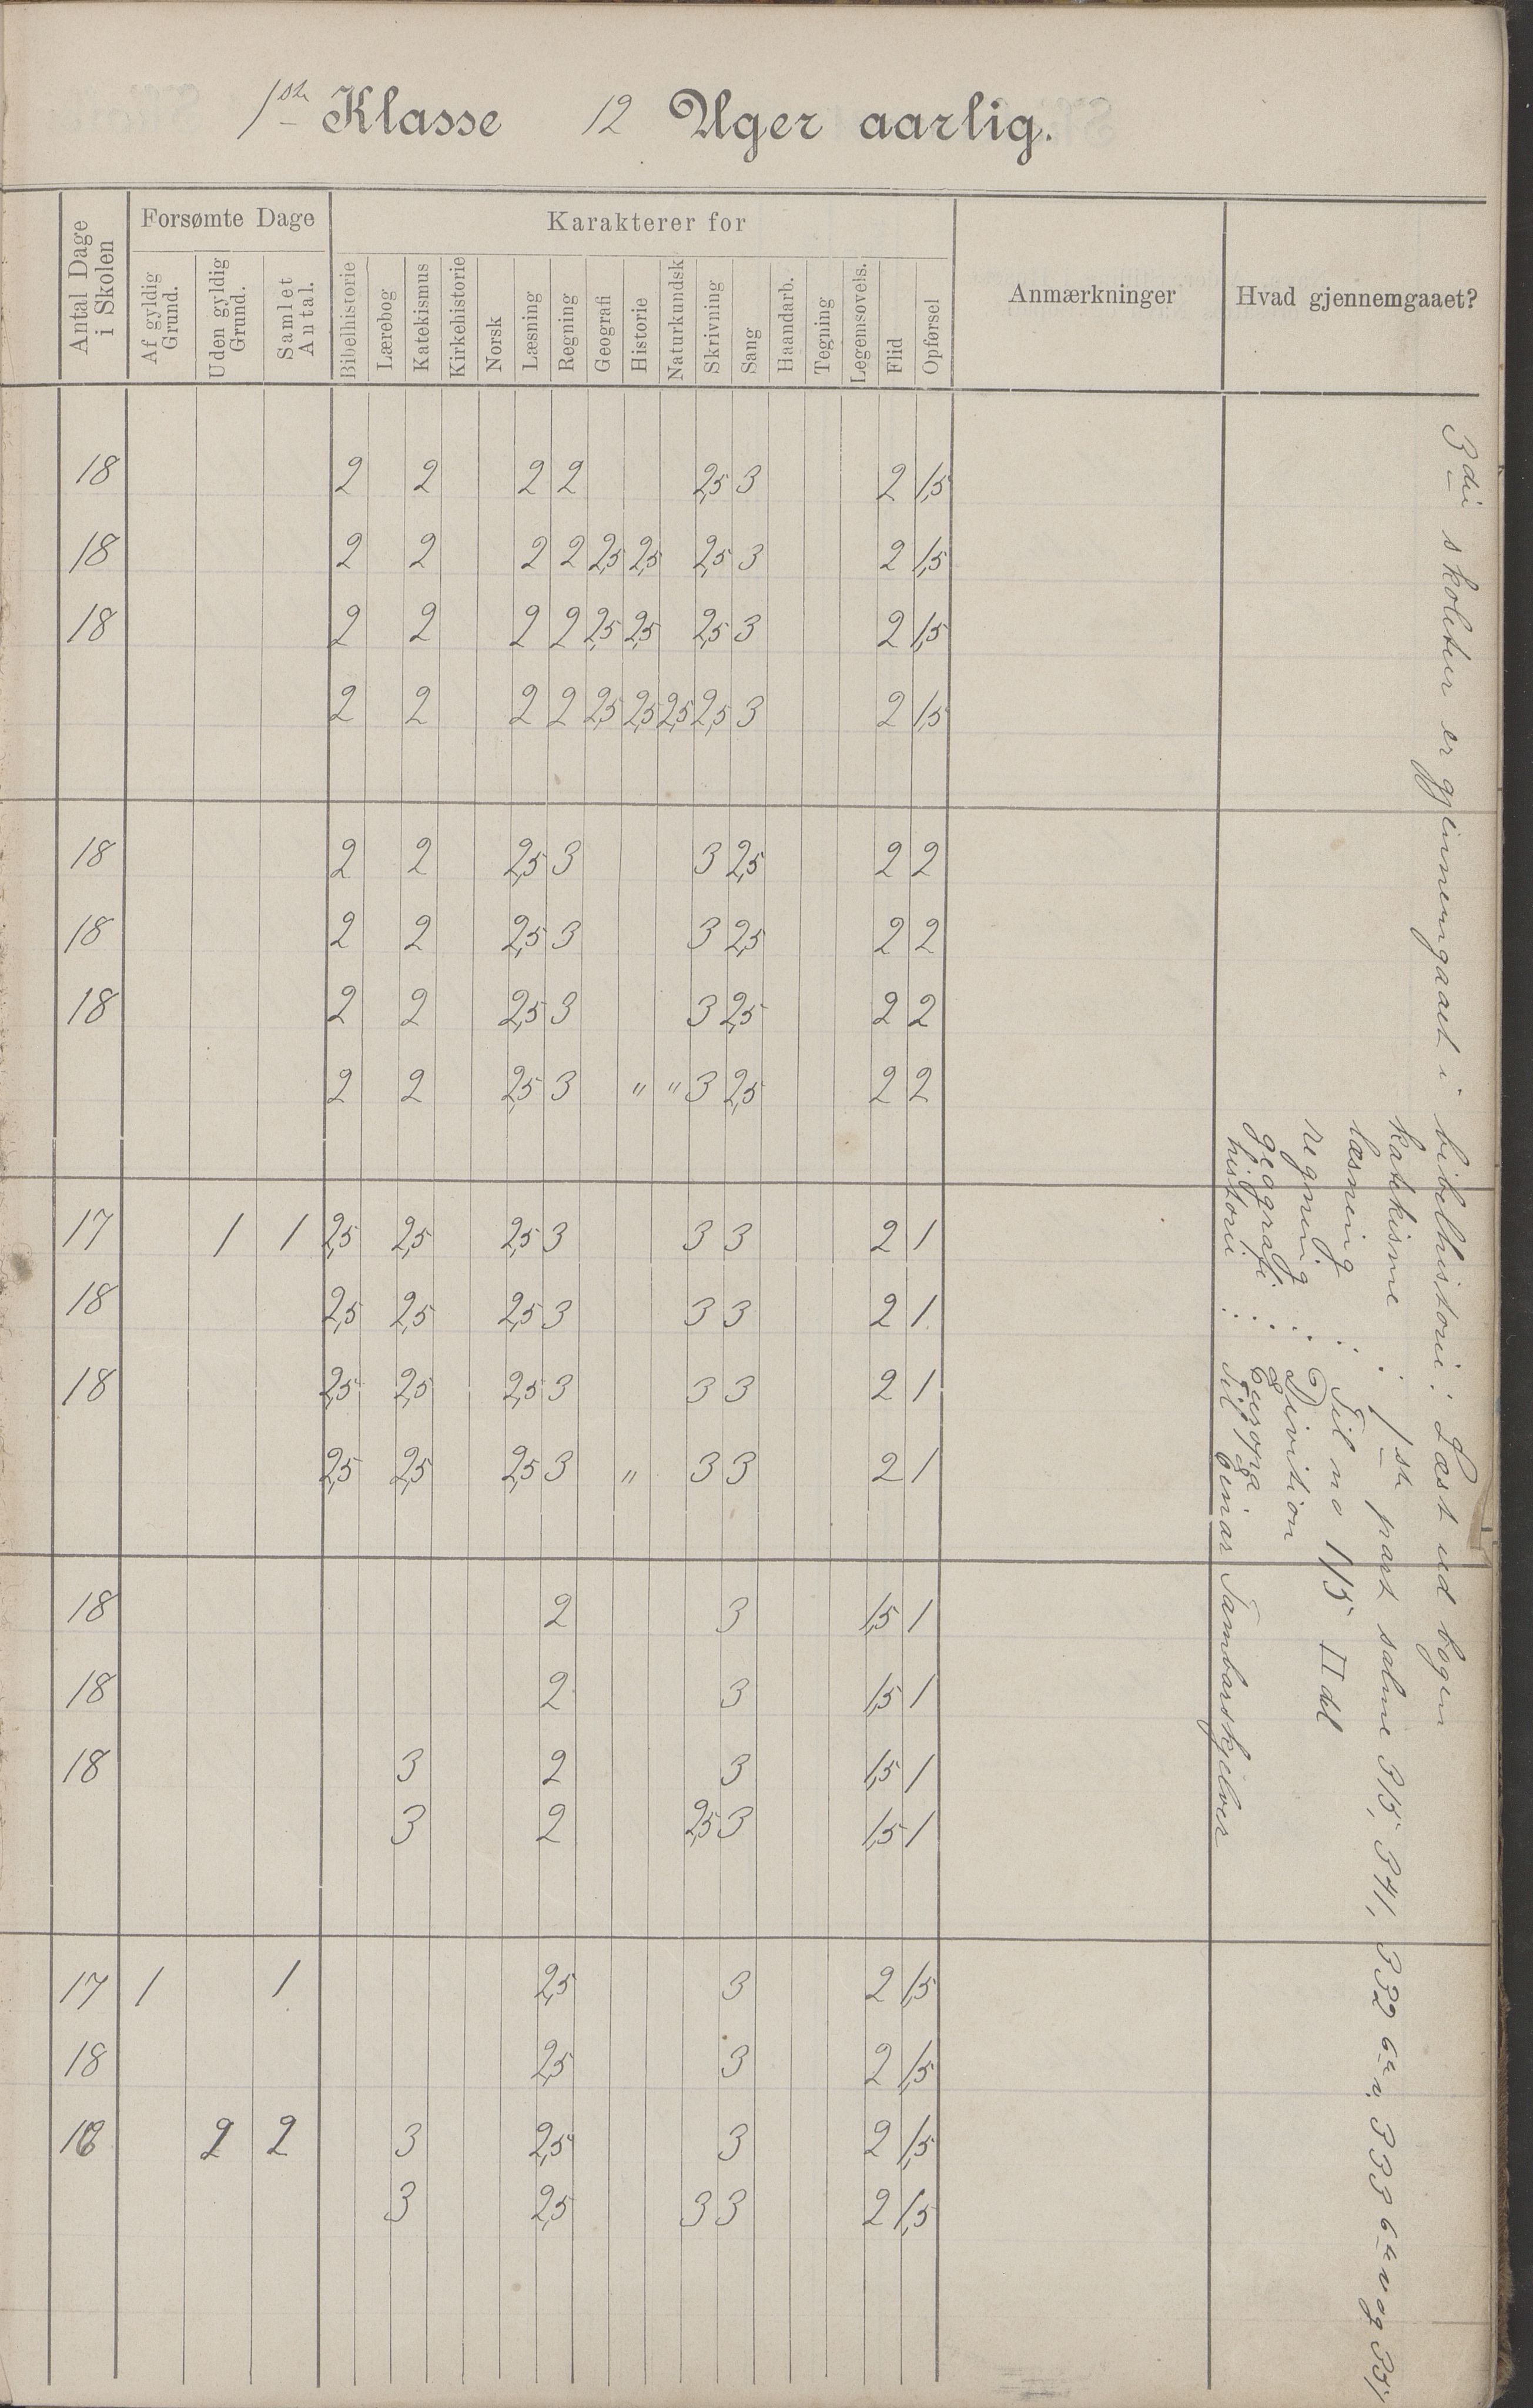 1ste Klasse 12 Uger aarlig.
Antal Dage i Skolen
Forsømte Dage
Karakterer for
Anmærkninger
Hvad gjennemgaaet?
Af gyldig Grund.
Uden gyldig Grund.
Samlet Antal.
Bibelhistorie
Lærebog
Katekismus
Kirkehistorie
Norsk
Læsning
Regning
Geografi
Historie
Naturkundsk
Skrivning
Sang
Haandarb.
Tegning
Legemsovels.
Flid
Opførsel
18 2 2 2 2 2,5 3 2 1,5
18 2 2 2 2 2,5 2,5 2,5 3 2 1,5
18 2 2 2 2 2,5 2,5 2,5 3 2 1,5
2 2 2 2 2,5 2,5 2,5 2,5 3 2 1,5
18 2 2 2,5 3 3 2,5 2 2
18 2 2 2,5 3 3 2,5 2 2
18 2 2 2,5 3 3 2,5 2 2
2 2 2,5 3 " " 3 2,5 2 2
17 1 1 2,5 2,5 2,5 3 3 3 2 1
18 2,5 2,5 2,5 3 3 3 2 1
18 2,5 2,5 2,5 3 3 3 2 1
2,5 2,5 2,5 3 " 3 3 2 1
18 2 3 1,5 1
18 2 3 1,5 1
18 3 2 3 1,5 1
3 2 2,5 3 1,5 1
17 1 1 2,5 3 2 1,5
18 2,5 3 2 1,5
16 2 2 3 2,5 3 2 1,5
3 2,5 3 3 2 1,5
3die skoletur er gjennemgaaet i bibelhistorie: Læst ud bogen
katekisme : 1ste part salme 315, 341, 332 6te v, 333 6te v og 35,
læsning : Til no 115 II del
regning : Divition
geografi : Europa
historie : Til Einar Tambarskjelver